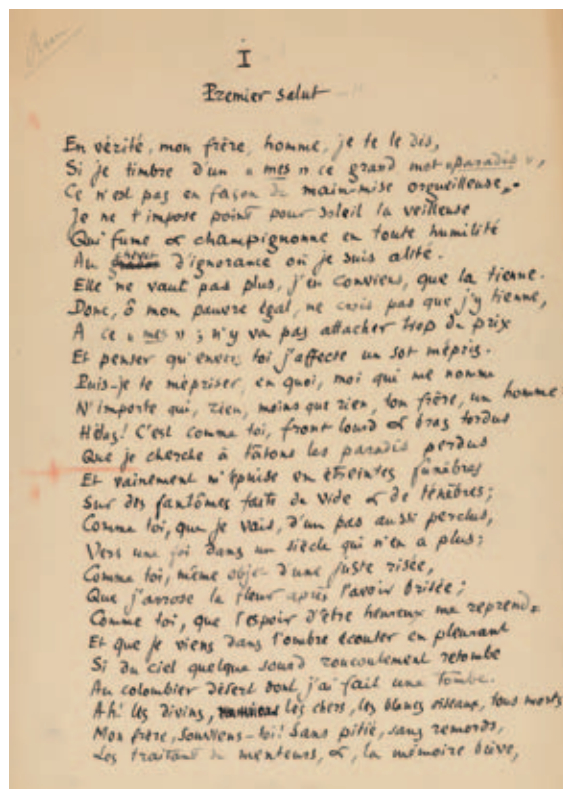 I
Premier salut
En vérité, mon frère, homme, je te le dis,
Si je timbre d'un « mes » ce grand mot « paradis »,
Ce n'est pas en façon de main-mise orgueilleuse.
Je ne t'impose point pour soleil la veilleuse
Qui fume & champignonne en toute humilité
Au chevet d'ignorance où je suis alité.
Elle ne vaut pas plus, j'en conviens, que la tienne.
Donc, ô mon pauvre égal, ne crois pas que j'y tienne,
A ce « mes » ; n'y va pas attacher trop de prix
Et penser qu'envers toi j'affecte un sot mépris.
Puis-je te mépriser, en quoi, moi qui me nomme
N'importe qui, rien, moins que rien, ton frère, un homme?
Hélas! C'est comme toi, front lourd & bras tordus
Que je cherche à tâtons les paradis perdus
Et vainement m'épuise en étreintes funèbres
Sur des fantômes faits de vide & de ténèbres;
Comme toi, que je vais, d'un pas aussi perclus,
Vers une foi dans un siècle qui n'en a plus;
Comme toi, même objet d'une juste risée,
Que j'arrose la fleur après l'avoir brisée;
Comme toi, que l'espoir d'être heureux me reprend,
Et que je viens dans l'ombre écouter en pleurant
Si du ciel quelque sourd roucoulement retombe
Au colombier désert dont j'ai fait une tombe.
Ah! les divins, les chers, les blancs oiseaux, tous morts!
Mon frère, souviens-toi! Sans pitié, sans remords,
Les traitant de menteurs, &, la mémoire brève,